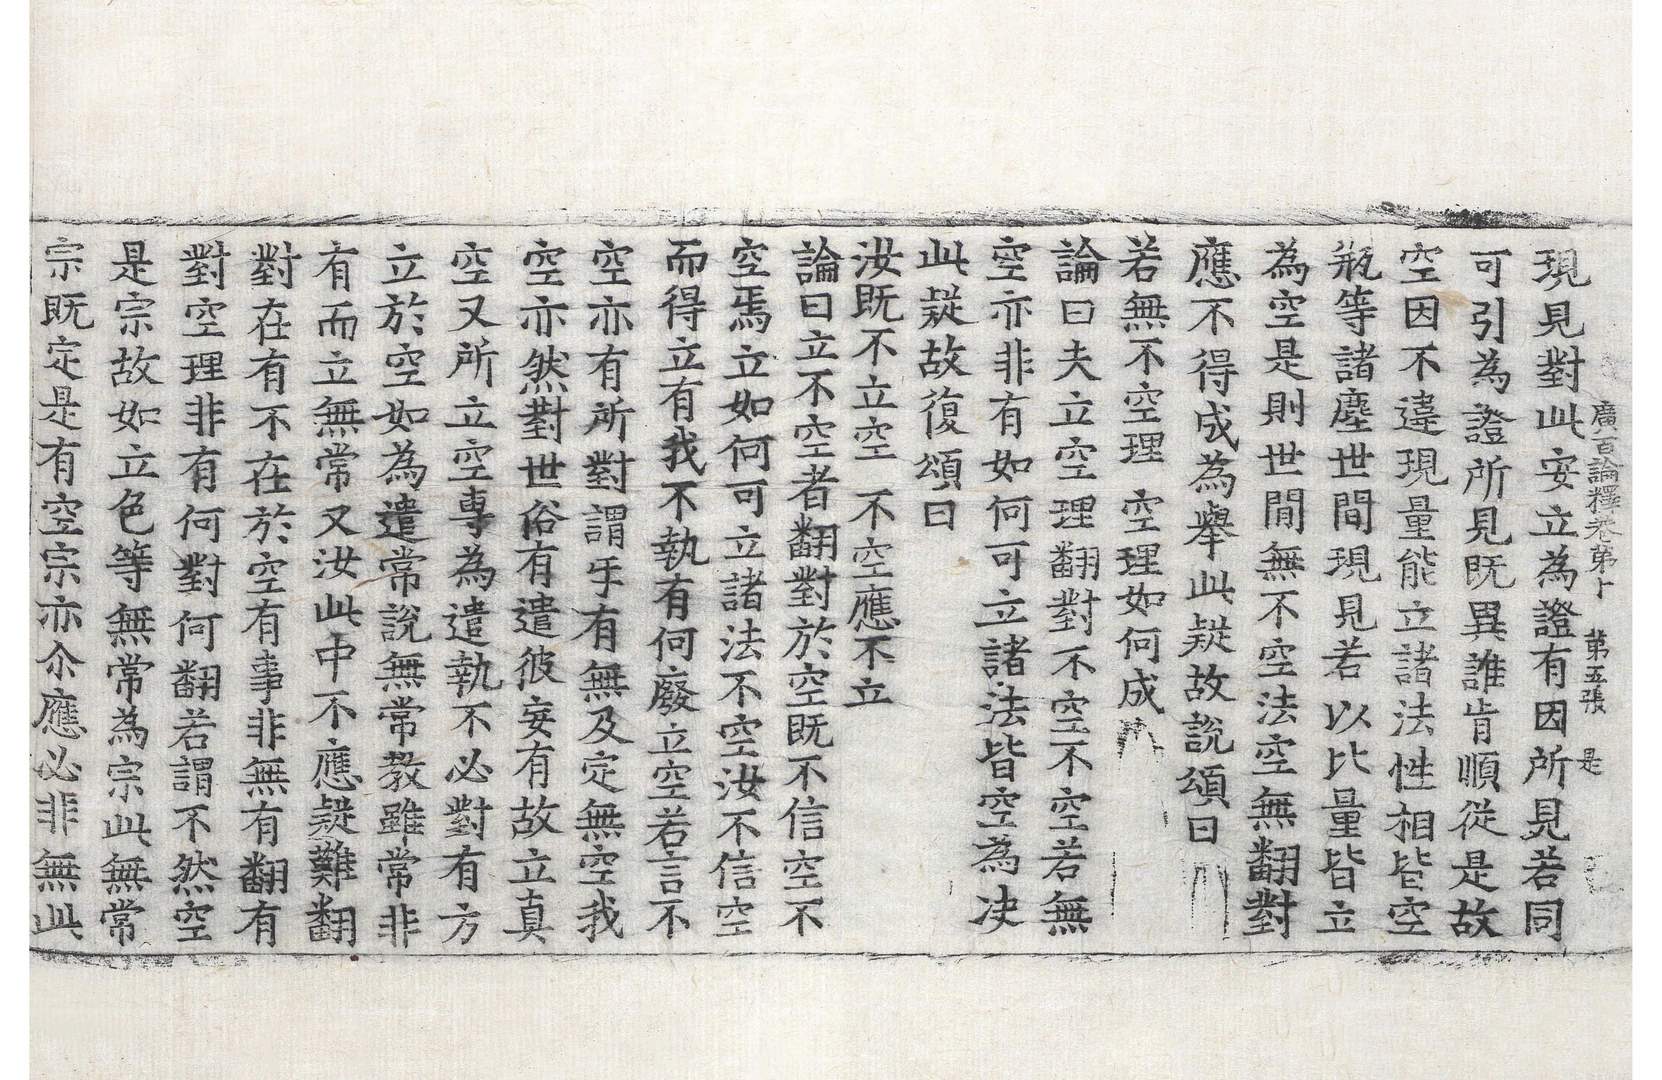 廣百論釋卷第十 第五張 是
現見對此安立為證有因所見若同
可引為證所見既異誰肯順從是故
空因不違現量能立諸法性相皆空
瓶等諸塵世間現見若以比量皆立
為空是則世間無不空法空無翻對
應不得成為舉此疑故說頌曰
若無不空理 空理如何成
論曰夫立空理翻對不空不空若無
空亦非有如何可立諸法皆空為決
此疑故復頌曰
汝既不立空 不空應不立
論曰立不空者翻對於空既不信空不
空焉立如何可立諸法不空汝不信空
而得立有我不執有何廢立空若言不
空亦有所對謂乎有無及定無空我
空亦然對世俗有遣彼妄有故立真
空又所立空專為遣執不必對有方
立於空如為遣常說無常教雖常非
有而立無常又汝此中不應疑難翻
對在有不在於空有事非無有翻有
對空理非有何對何翻若謂不然空
是宗故如立色等無常為宗此無常
宗既定是有空宗亦尒應必非無此